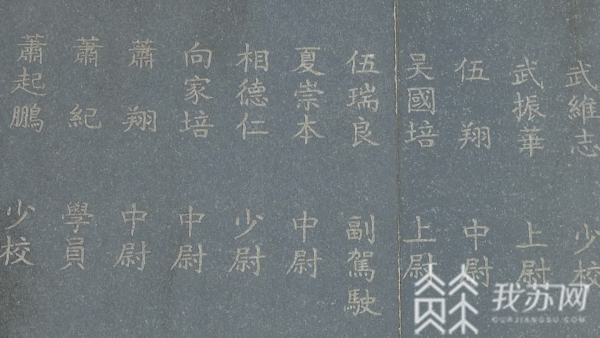 武維志 少校
武振華 上尉
伍翔 中尉
吴國培 上尉
伍瑞良 副駕駛
夏崇本 中尉
相德仁 少尉
向家培 中尉
蕭翔 中尉
蕭紀 學員
蕭起鵬 少校
我苏网
OURJIANGSU.COM